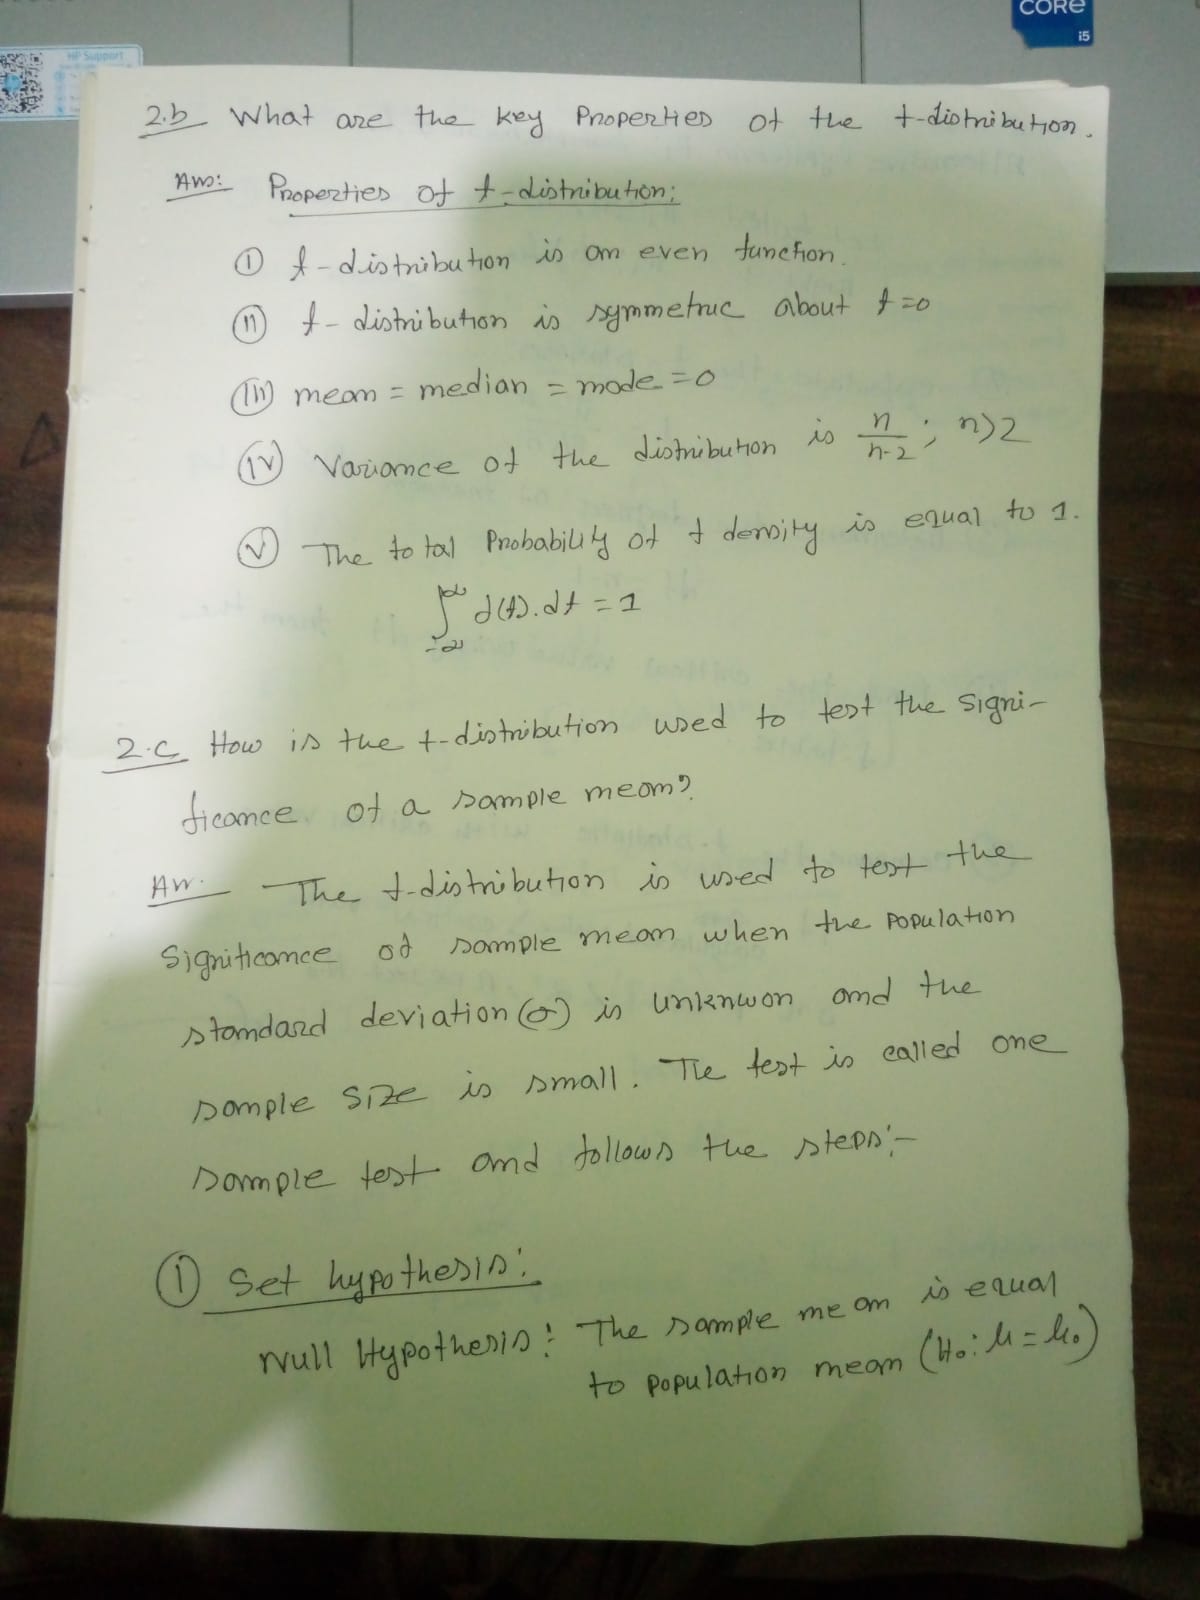 CORE
i5
HP Support
2.b What are the key Properties of the t-distribution.
Ans: Properties of t-distribution:
(i) t-distribution is an even function.
(ii) t-distribution is symmetric about t=0
(iii) mean = median = mode = 0
(iv) Variance of the distribution is n/(n-2) ; n>2
(v) The total Probability of t density is equal to 1.
∫_{-∞}^{∞} f(t).dt = 1
2.c How is the t-distribution used to test the signi-
ficance of a sample mean?
An. The t-distribution is used to test the
significance of sample mean when the population
standard deviation (σ) is unknwon and the
sample size is small. The test is called one
sample test and follows the steps:-
(i) Set hypothesis:
Null Hypothesis: The sample mean is equal
to population mean (H₀: μ = μ₀)